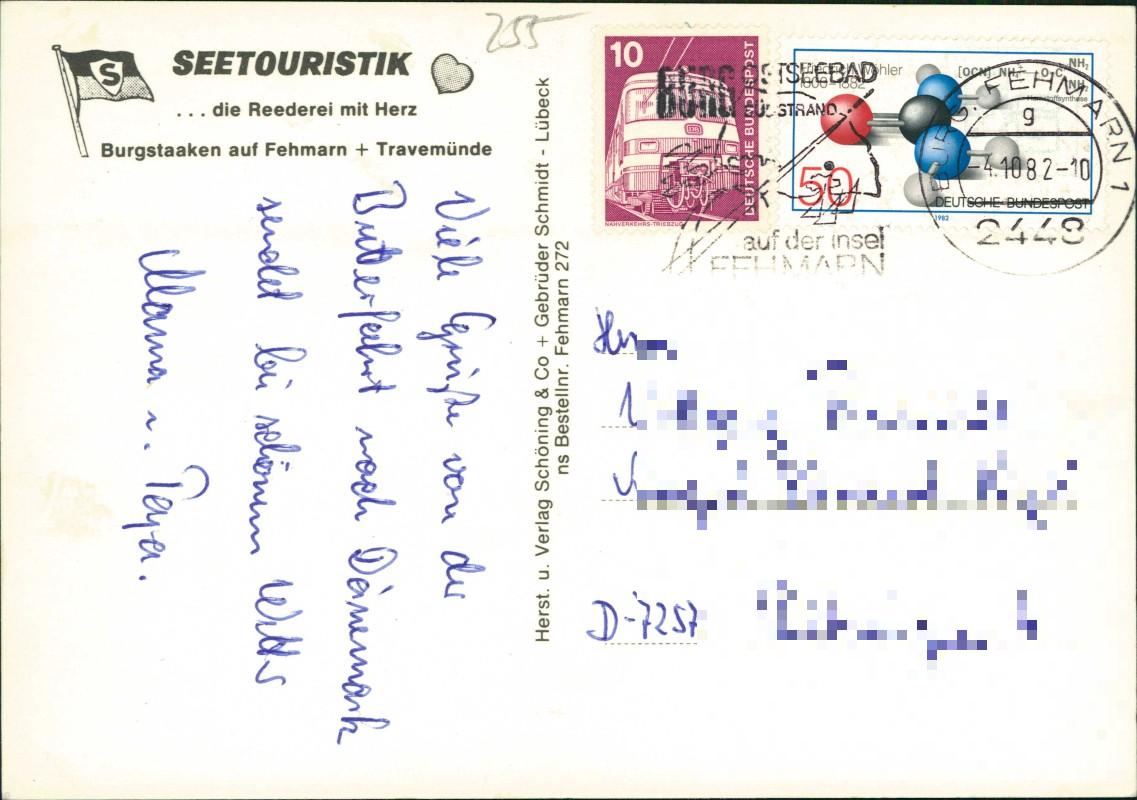 255
SEETOURISTIK
S
... die Reederei mit Herz
Burgstaaken auf Fehmarn + Travemünde
Viele Grüße von der
Butterfahrt nach Dänemark
sendet bei schönem Wetter
Mama u. Papa.
Herst. u. Verlag Schöning & Co + Gebrüder Schmidt - Lübeck
ns Bestellnr. Fehmarn 272
10
DEUTSCHE BUNDESPOST
DB
NAHVERKEHRS-TRIEBZUG
Friedrich Wöhler
1800-1882
[OCN] NH₄ O=C NH₂ NH₂
Harnstoffsynthese
50
DEUTSCHE BUNDESPOST
1982
BURG OSTSEEBAD
SÜDSTRAND
auf der Insel
FEHMARN
BURG, FEHMARN 1
g
-4.10 82-10
2448
Herrn
D-7257